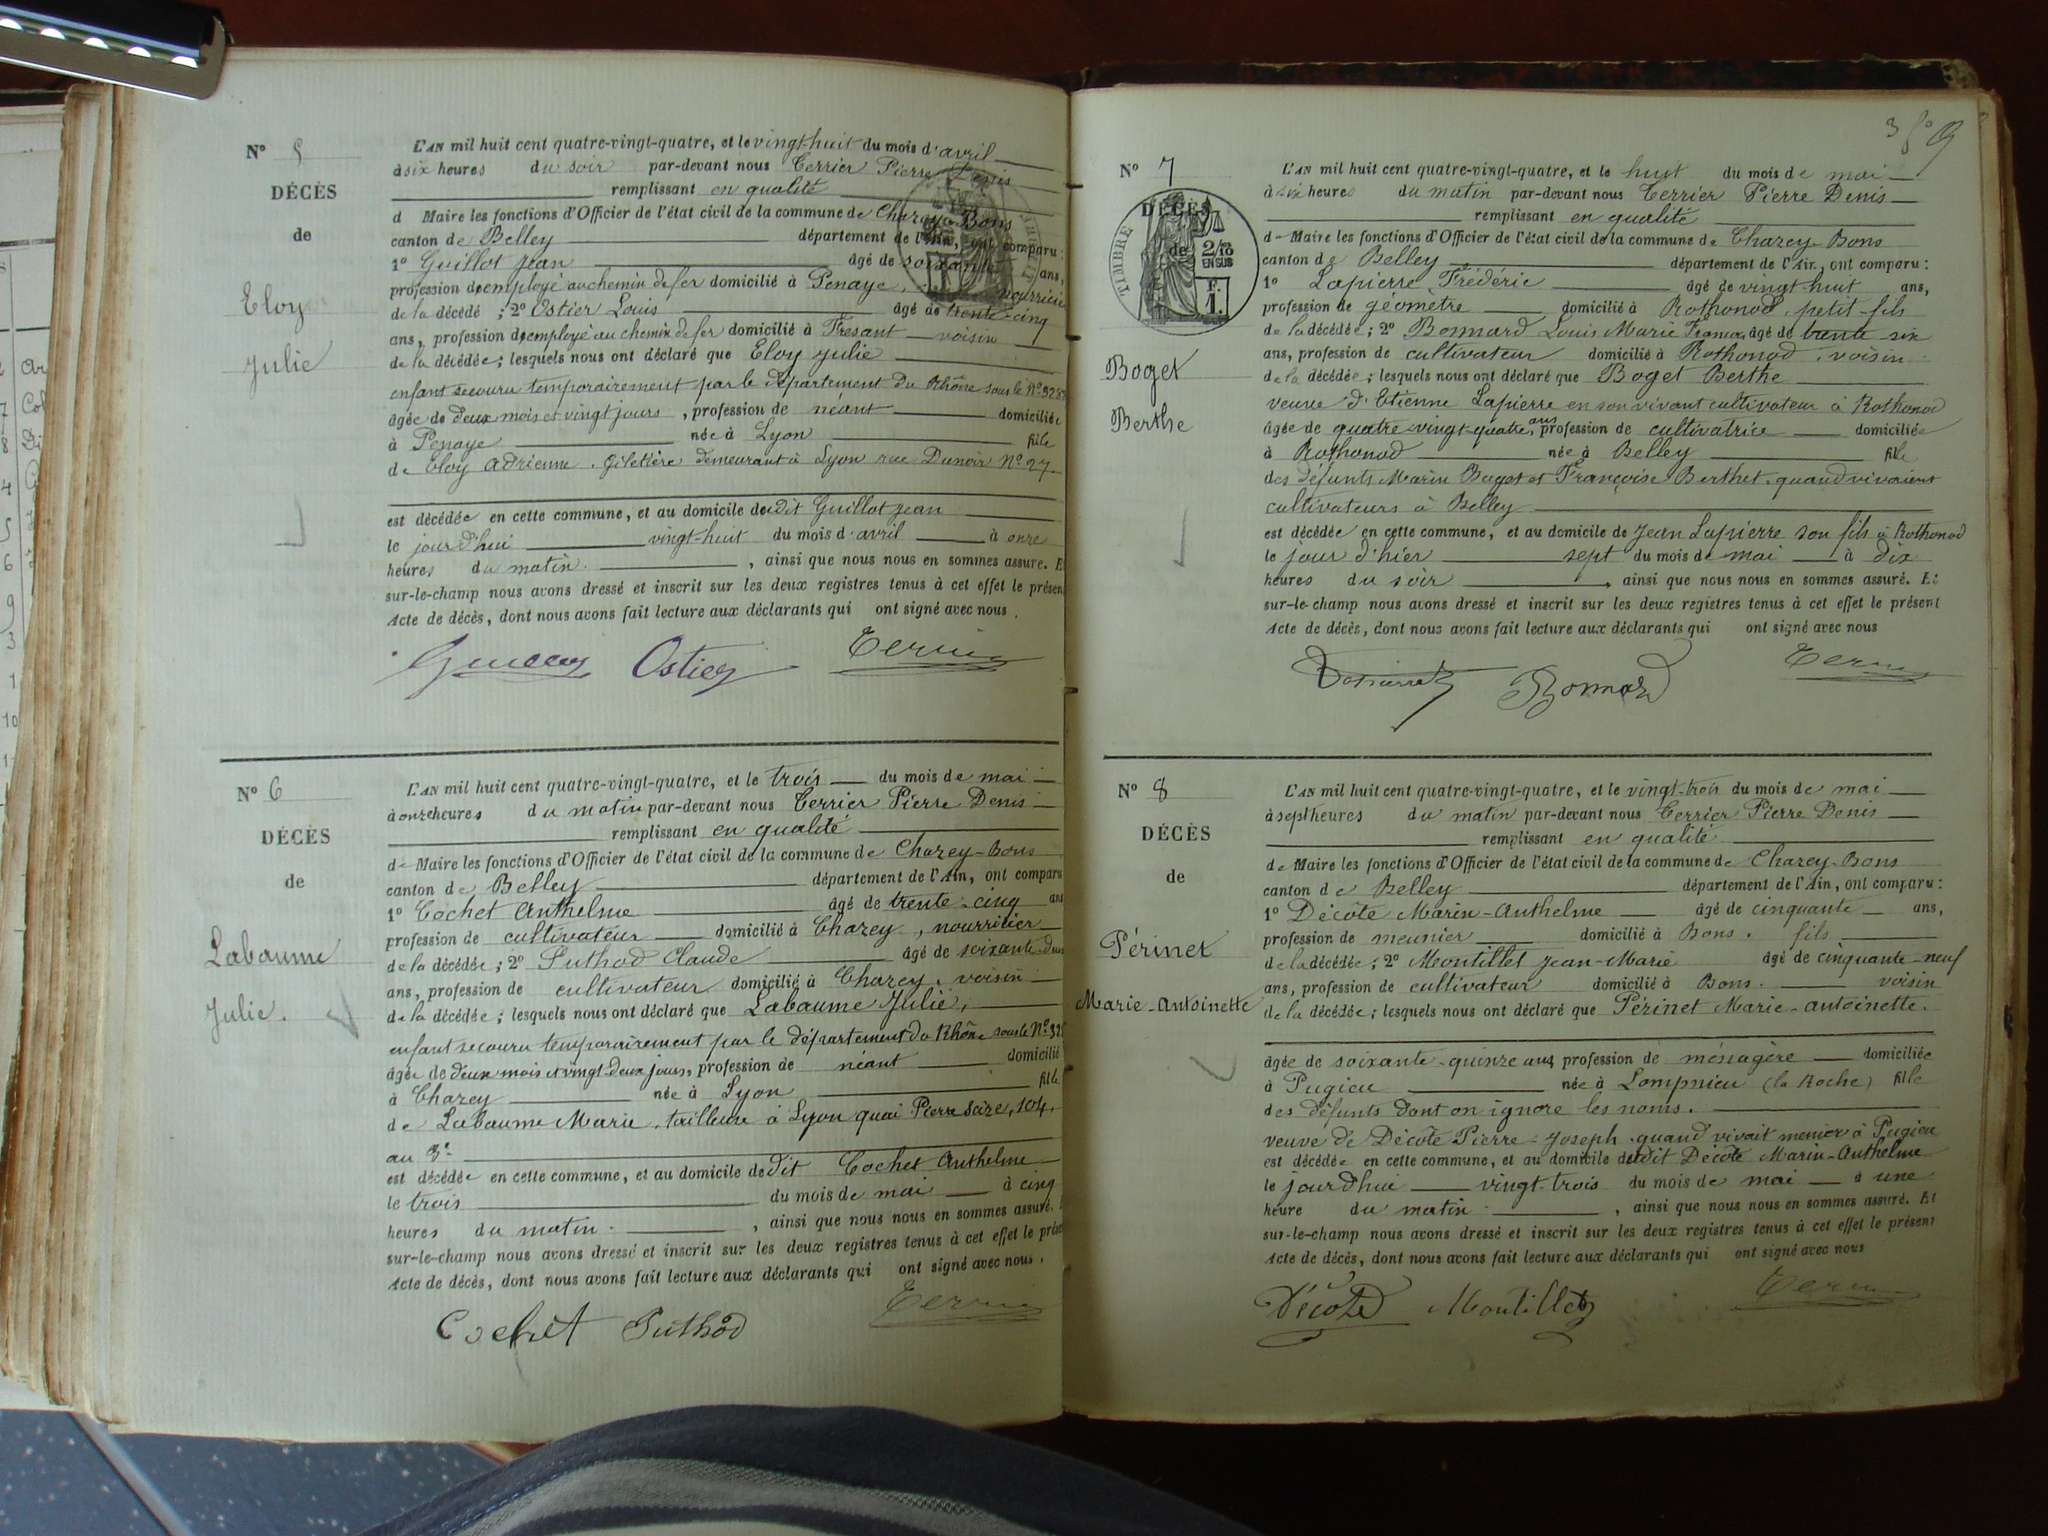 N° 5
DÉCÈS
de
Eloy
Julie
L'AN mil huit cent quatre-vingt-quatre, et le vingt-huit du mois d'avril
à six heures du soir par-devant nous Terrier Pierre Denis
remplissant en qualité
d Maire les fonctions d'Officier de l'état civil de la commune de Chazey-Bons
canton de Belley département de l'Ain, ont comparu:
1° Guillot Jean âgé de soixante ans,
profession d'employé au chemin de fer domicilié à Penaye, nourricier
de la décédé; 2° Ostier Louis âgé de trente-cinq
ans, profession d'employé au chemin de fer domicilié à Fresant voisin
de la décédée; lesquels nous ont déclaré que Eloy Julie
enfant secouru temporairement par le département du Rhône sous le N°
âgée de deux mois et vingt jours, profession de néant domiciliée
à Penaye née à Lyon fille
de Eloy Adrienne, Giletière demeurant à Lyon rue Dunoir N° 27
est décédée en cette commune, et au domicile dudit Guillot Jean
le jourd'hui vingt-huit du mois d'avril à onze
heures du matin, ainsi que nous nous en sommes assuré. Et
sur-le-champ nous avons dressé et inscrit sur les deux registres tenus à cet effet le présent
Acte de décès, dont nous avons fait lecture aux déclarants qui ont signé avec nous.
Ostier Terrier
N° 6
DÉCÈS
de
Labaume
Julie.
L'AN mil huit cent quatre-vingt-quatre, et le trois du mois de mai
à onze heures du matin par-devant nous Terrier Pierre Denis
remplissant en qualité
de Maire les fonctions d'Officier de l'état civil de la commune de Chazey-Bons
canton de Belley département de l'Ain, ont comparu
1° Cochet Anthelme âgé de trente-cinq ans
profession de cultivateur domicilié à Chazey, nourricier
de la décédée; 2° Puthod Claude âgé de soixante-deux
ans, profession de cultivateur domicilié à Chazey, voisin
de la décédée; lesquels nous ont déclaré que Labaume Julie,
enfant secouru temporairement par le département du Rhône sous le N°
âgée de deux mois et vingt-deux jours, profession de néant domicilié
à Chazey née à Lyon fille
de Labaume Marie, tailleuse à Lyon quai Pierre Scize, 104,
au 3e
est décédée en cette commune, et au domicile dudit Cochet Anthelme
le trois du mois de mai à cinq
heures du matin, ainsi que nous nous en sommes assuré.
sur-le-champ nous avons dressé et inscrit sur les deux registres tenus à cet effet le prése
Acte de décès, dont nous avons fait lecture aux déclarants qui ont signé avec nous.
Cochet Puthod Terrier
N° 7
DÉCÈS
de
TIMBRE
2/10
EN SUS
F.
1.
Boget
Berthe
L'AN mil huit cent quatre-vingt-quatre, et le huit du mois de mai
à six heures du matin par-devant nous Terrier Pierre Denis
remplissant en qualité
de Maire les fonctions d'Officier de l'état civil de la commune de Chazey-Bons
canton de Belley département de l'Ain, ont comparu:
1° Lapierre Frédéric âgé de vingt-huit ans,
profession de géomètre domicilié à Rothonod, petit-fils
de la décédée; 2° Bonnard Louis Marie âgé de trente six
ans, profession de cultivateur domicilié à Rothonod, voisin
de la décédée; lesquels nous ont déclaré que Boget Berthe
veuve d'Etienne Lapierre en son vivant cultivateur à Rothonod
âgée de quatre-vingt-quatre ans, profession de cultivatrice domiciliée
à Rothonod née à Belley fille
des défunts Marin Boget et Françoise Berthet, quand vivaient
cultivateurs à Belley
est décédée en cette commune, et au domicile de Jean Lapierre son fils à Rothonod
le jour d'hier sept du mois de mai à dix
heures du soir, ainsi que nous nous en sommes assuré. Et
sur-le-champ nous avons dressé et inscrit sur les deux registres tenus à cet effet le présent
Acte de décès, dont nous avons fait lecture aux déclarants qui ont signé avec nous
Bonnard Terrier
N° 8
DÉCÈS
de
Périnet
Marie-Antoinette
L'AN mil huit cent quatre-vingt-quatre, et le vingt-trois du mois de mai
à sept heures du matin par-devant nous Terrier Pierre Denis
remplissant en qualité
de Maire les fonctions d'Officier de l'état civil de la commune de Chazey-Bons
canton de Belley département de l'Ain, ont comparu:
1° Décôte Marin-Anthelme âgé de cinquante ans,
profession de meunier domicilié à Bons, fils
de la décédée; 2° Montillet Jean-Marie âgé de cinquante-neuf
ans, profession de cultivateur domicilié à Bons. voisin
de la décédée; lesquels nous ont déclaré que Périnet Marie-antoinette.
âgée de soixante-quinze ans, profession de ménagère domiciliée
à Pugieu née à Lompnieu (la Roche) fille
des défunts dont on ignore les noms.
veuve de Décôte Pierre-Joseph, quand vivait menier à Pugieu
est décédée en cette commune, et au domicile dudit Décôte Marin-Anthelme
le jourd'hui vingt-trois du mois de mai à une
heure du matin, ainsi que nous nous en sommes assuré. Et
sur-le-champ nous avons dressé et inscrit sur les deux registres tenus à cet effet le présent
Acte de décès, dont nous avons fait lecture aux déclarants qui ont signé avec nous
Décôte Montillet Terrier